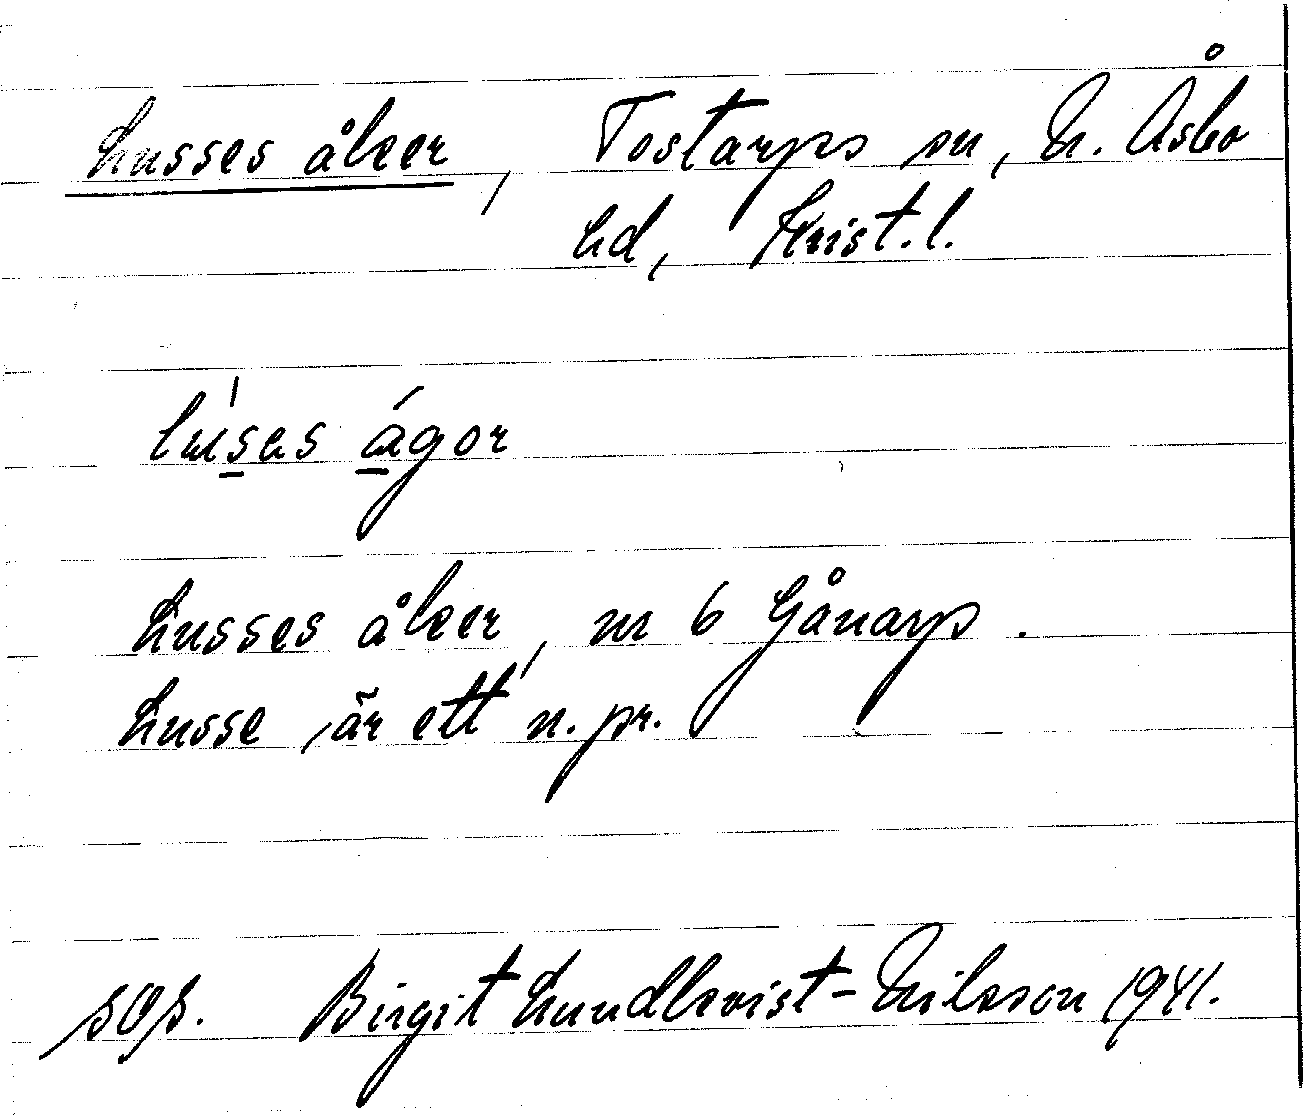 Lusses åker, Tostarps sn, N. Åsbo
hd, Krist.l.
lusas ágor
Lusses åker, nr 6 Gånarp.
Lusse är ett n.pr.
Birgit Lundkvist-Nilsson 1941.